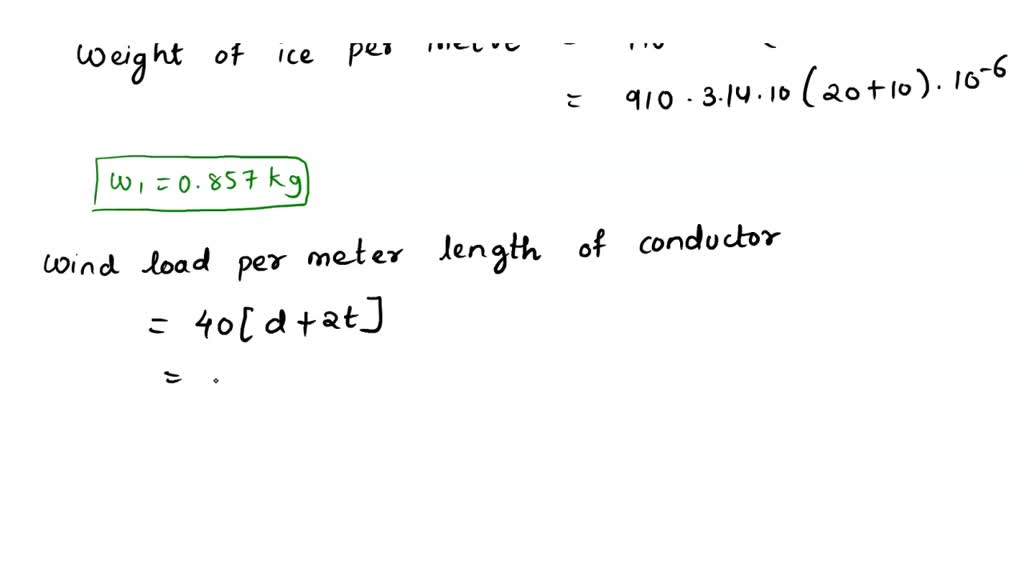 Weight of ice per metre =
= 910 · 3.14 · 10 (20+10) · 10⁻⁶
w₁ = 0.857 kg
wind load per meter length of conductor
= 40[d+2t]
= .